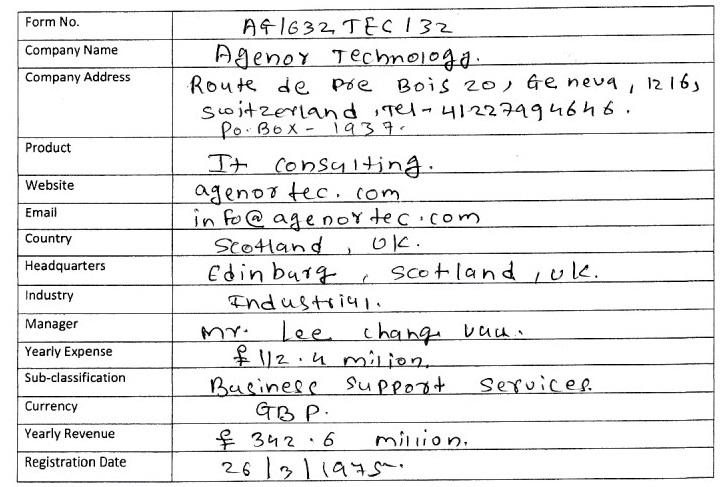 Form No. AG/632 TEC/32
Company Name Agenor Technology.
Company Address Route de Pre Bois 20, Geneva, 1216,
Switzerland, Tel-41227994646.
Po. Box - 1937.
Product It consulting.
Website agenortec.com
Email info@agenortec.com
Country Scotland, UK.
Headquarters Edinburg, Scotland, UK.
Industry Industrial.
Manager Mr. Lee Chang
Yearly Expense £ 112.4 milion.
Sub-classification Business Support Services.
Currency GBP.
Yearly Revenue £ 342.6 million.
Registration Date 26/3/1975.